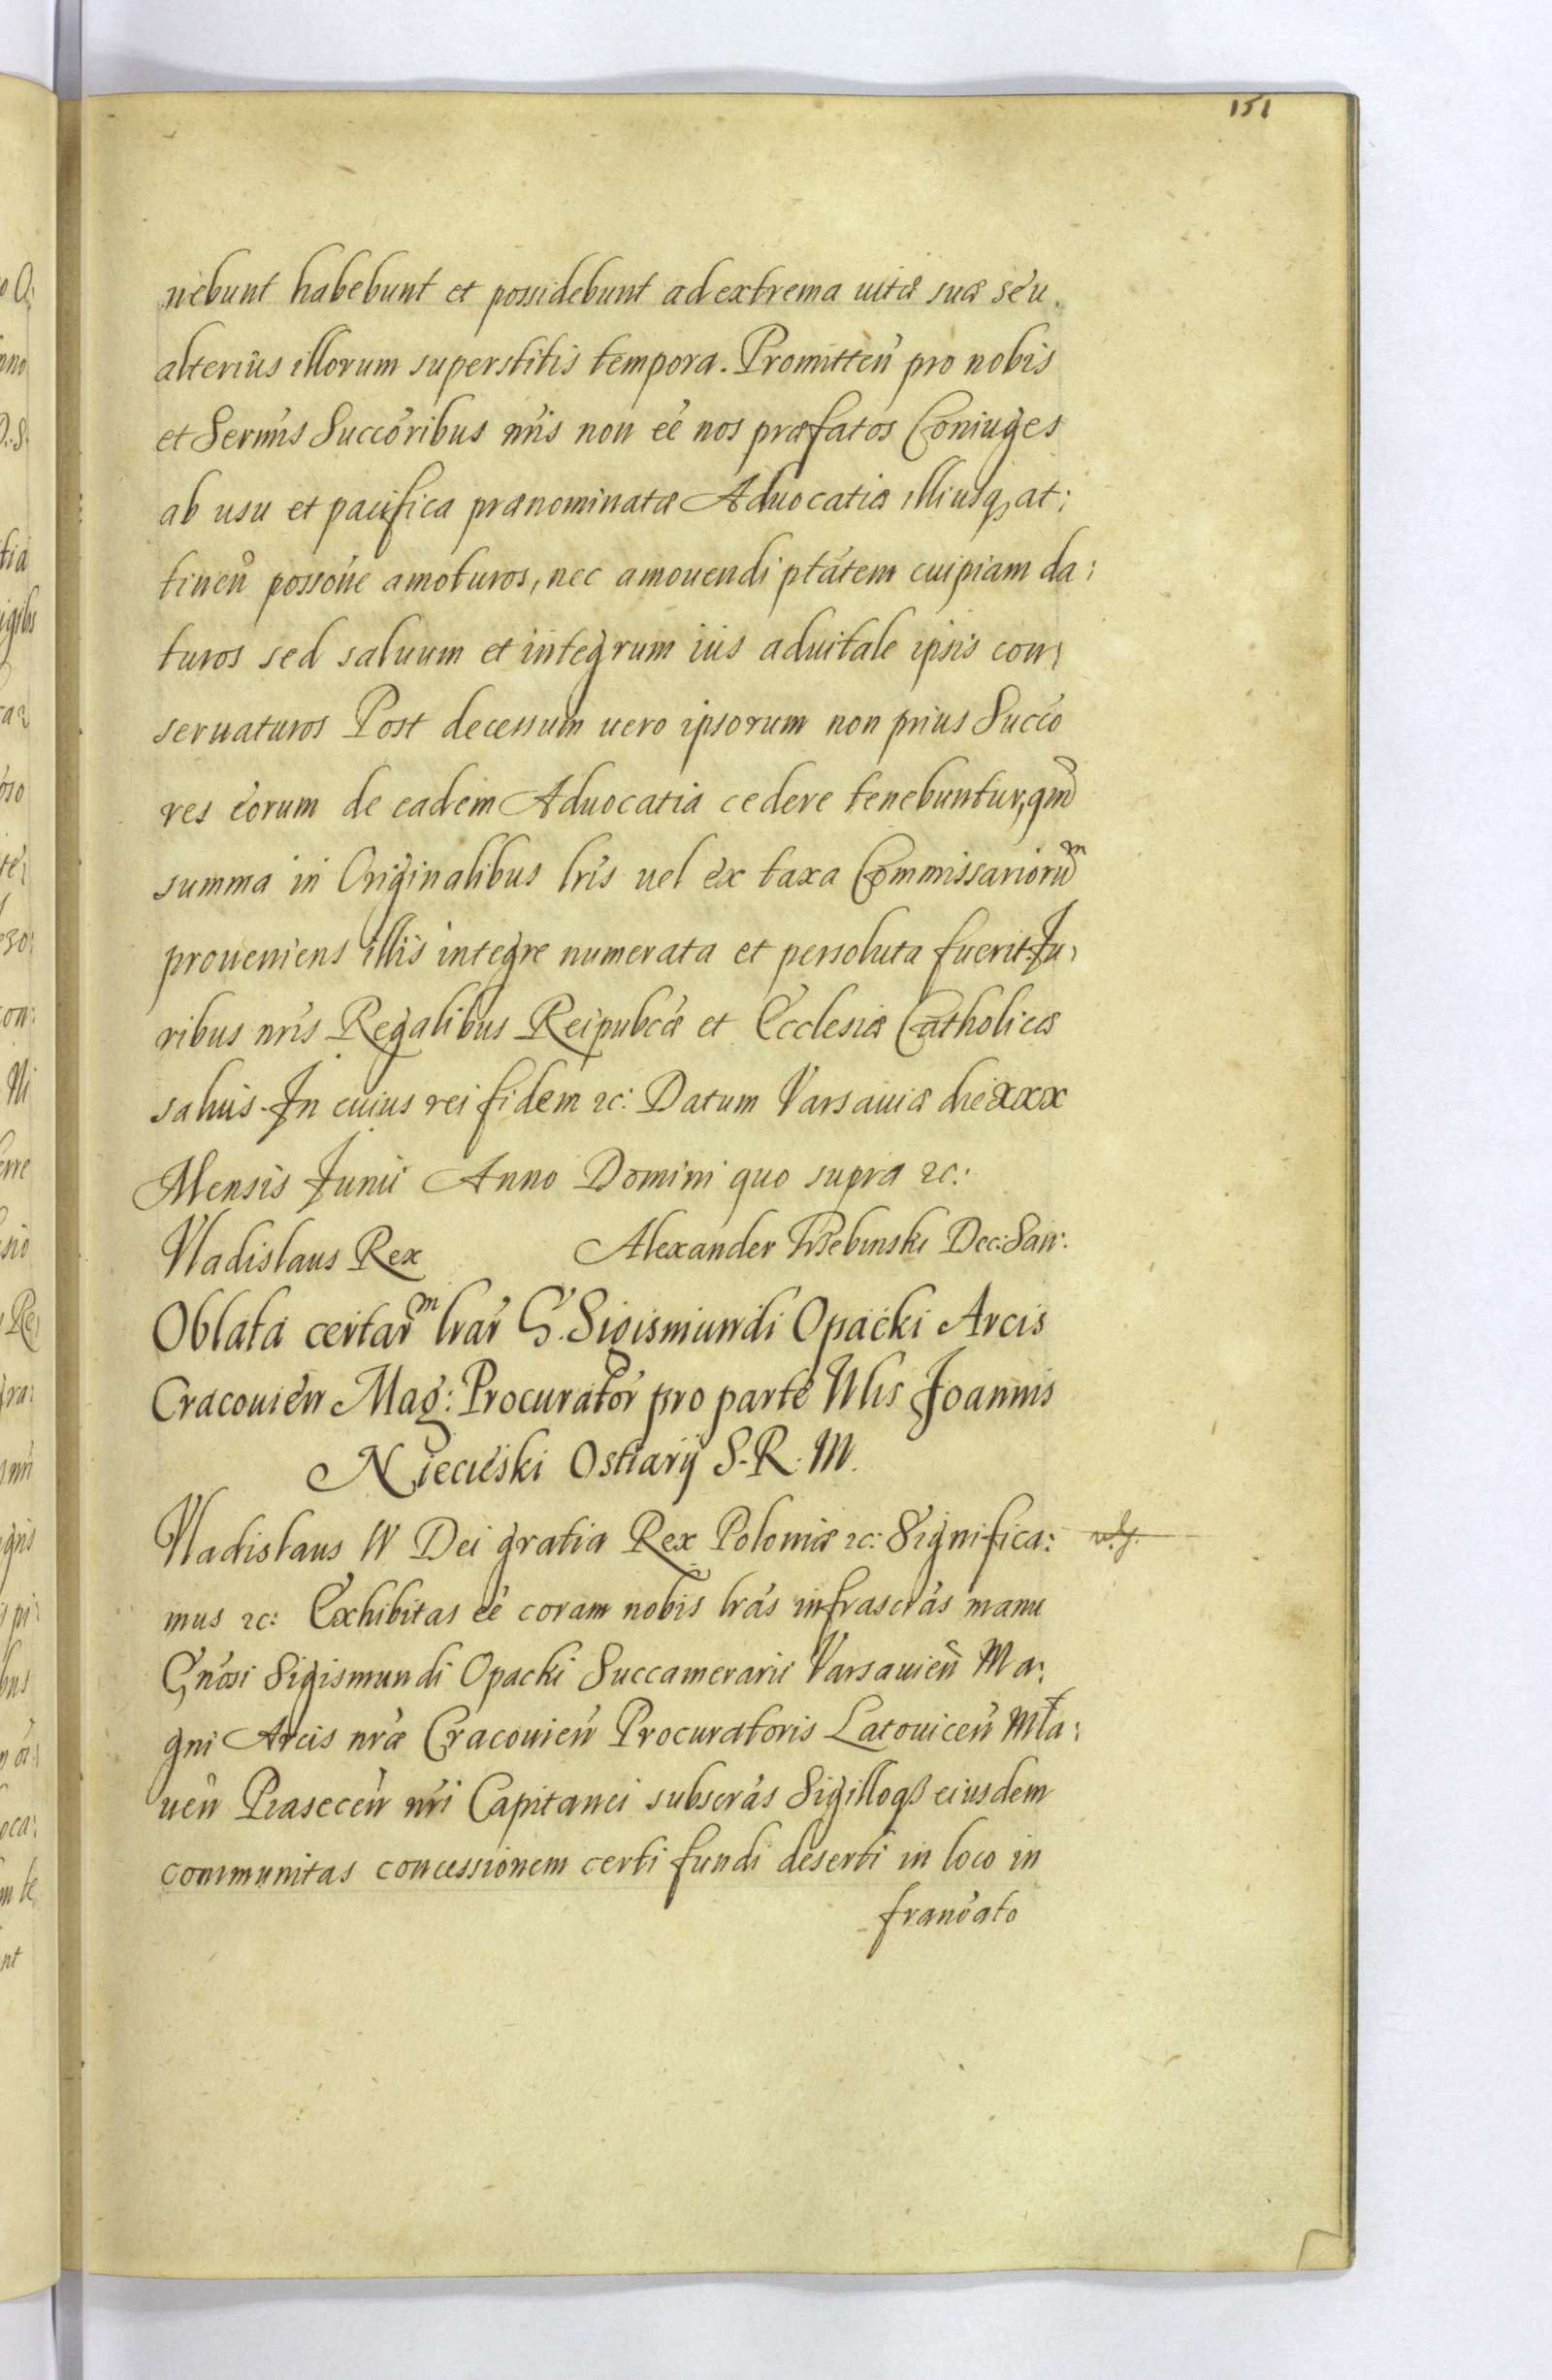 151
nebunt habebunt et possidebunt ad extrema uitæ suæ seu
alterius illorum superstitis tempora. Promitteñ pro nobis
et Sermis Succoribus nris non eé nos præfatos Coniuges
ab usu et pacifica prænominatæ Aduocatiæ illiusq, at:
tineñ possoné amoturos, nec amouendi ptátem cuipiam da:
turos sed saluum et integrum ius aduitale ipsis con:
seruaturos Post decessum uero ipsorum non prius Succó
res eorum de eadem Aduocatia cedere tenebuntur, qm̃
summa in Originalibus lris uel ex taxa Commissariorum
proueniens illis integre numerata et persoluta fuerit. Ju:
ribus nris Regalibus Reipubcæ et Ecclesiæ Catholicæ
saluis. In cuius rei fidem &c: Datum Varsauiæ die xxx
Mensis Junii Anno Domini quo supra &c:
Vladislaus Rex Alexander Trzebinski Dec: San:
Oblata certarm lrar G. Sigismundi Opacki Arcis
Cracouień Mag: Procurator pro parte Nlis Joannis
Niecieski Ostiarij S. R. M.
Vladislaus IV Dei gratia Rex Poloniæ &c: Significa:
mus &c: Exhibitas eé coram nobis lrás infrascrás manu
Gnósi Sigismundi Opacki Succamerarii Varsauień Ma:
gni Arcis nræ Cracouień Procuratoris Latouiceń Mła:
ueń Piaseceń nri Capitanei subscrás Sigilloqз eiusdem
communitas concessionem certi fundi deserti in loco in